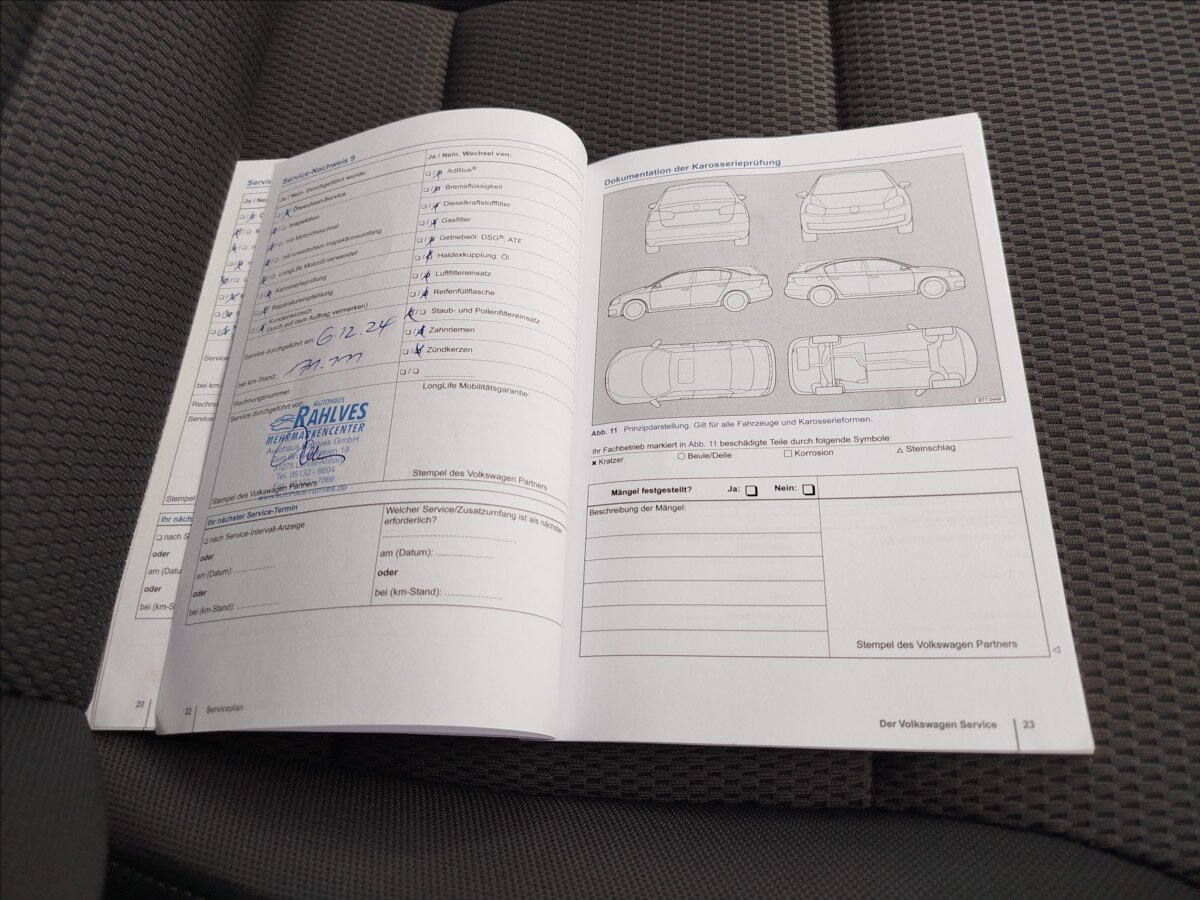 Service-Nachweis 9
Ja / Nein. Durchgeführt wurde:
❑ / ❑ Ölwechsel-Service
❑ / ❑ Inspektion
❑ / ❑ mit Motorölwechsel
❑ / ❑ mit erweitertem Inspektionsumfang
❑ / ❑ LongLife Motoröl verwendet
❑ / ❑ Karosserieprüfung
❑ / ❑ Reparaturempfehlung
❑ / ❑ Kundenwunsch
(auch auf dem Auftrag vermerken)
Service durchgeführt am: 6.12.24
bei km-Stand:
Rechnungsnummer:
Service durchgeführt von:
AUTOHAUS
RAHLVES
MEHRMARKENCENTER
Autohaus Rahlves GmbH
Tel. 05132 - 6604
www.autohaus-rahlves.de
Stempel des Volkswagen Partners
Ja / Nein. Wechsel von:
❑ / ❑ AdBlue®
❑ / ❑ Bremsflüssigkeit
❑ / ❑ Dieselkraftstofffilter
❑ / ❑ Gasfilter
❑ / ❑ Getriebeöl: DSG®, ATF
❑ / ❑ Haldexkupplung: Öl
❑ / ❑ Luftfiltereinsatz
❑ / ❑ Reifenfüllflasche
❑ / ❑ Staub- und Pollenfiltereinsatz
❑ / ❑ Zahnriemen
❑ / ❑ Zündkerzen
❑ / ❑ ....................
LongLife Mobilitätsgarantie:
Stempel des Volkswagen Partners
Ihr nächster Service-Termin
❑ nach Service-Intervall-Anzeige
oder
am (Datum): ..............
oder
bei (km-Stand): ..............
Welcher Service/Zusatzumfang ist als nächster
erforderlich?
am (Datum): ..................
oder
bei (km-Stand): ..................
20
22 Serviceplan
Dokumentation der Karosserieprüfung
BTT-0449
Abb. 11 Prinzipdarstellung. Gilt für alle Fahrzeuge und Karosserieformen.
Ihr Fachbetrieb markiert in Abb. 11 beschädigte Teile durch folgende Symbole:
× Kratzer ○ Beule/Delle □ Korrosion △ Steinschlag
Mängel festgestellt? Ja: ❑ Nein: ❑
Beschreibung der Mängel:
Stempel des Volkswagen Partners
◁
Der Volkswagen Service 23